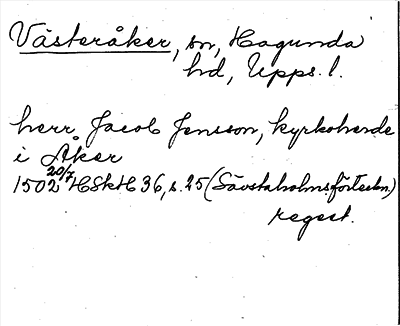 Västeråker, sn, Hagunda
hd, Upps. l.
herr Jacob Jensson, kyrkoherde
i Åker
1502 20/7 HSkH 36, s. 25 (Sävstaholmsförteckn.)
regest.